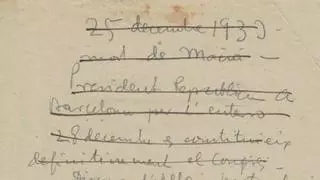 25 decembre 193
mort de Macià -
President Republica a
Barcelona per l'enterro
28 decembre es constitueix
definitivament el Consei